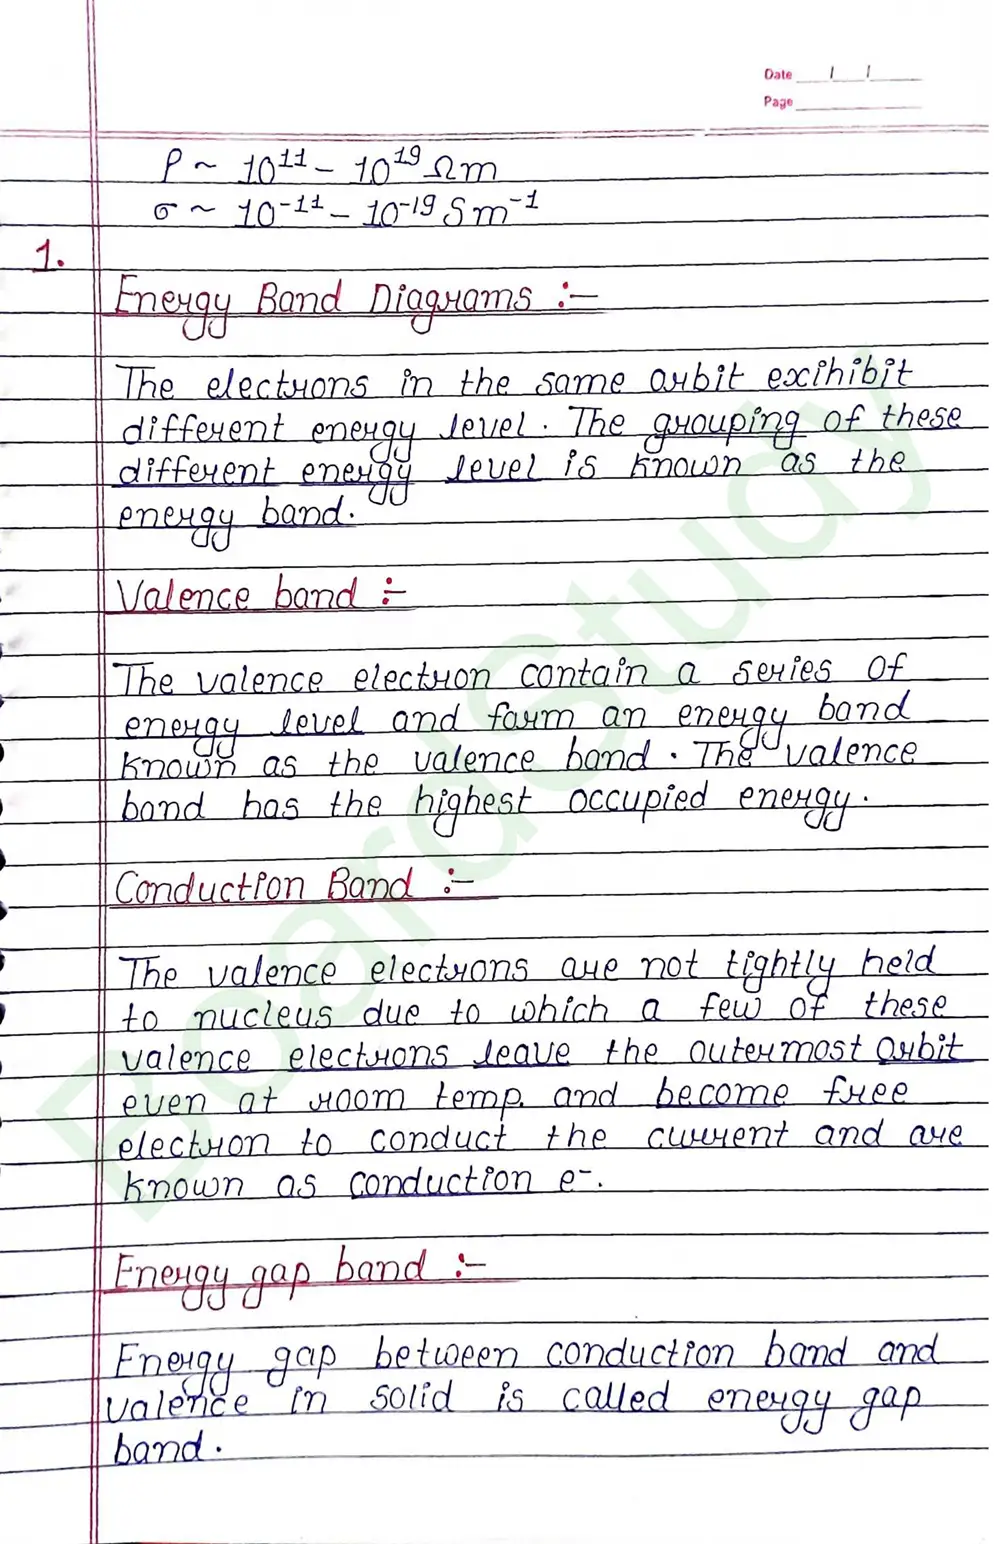 Date / /
Page
ρ ~ 10¹¹ – 10¹⁹ Ωm
σ ~ 10⁻¹¹ – 10⁻¹⁹ S m⁻¹
1.
Energy Band Diagrams :–
The electrons in the same orbit exihibit
different energy level. The grouping of these
different energy level is known as the
energy band.
Valence band :–
The valence electron contain a series of
energy level and form an energy band
known as the valence band. The valence
band has the highest occupied energy.
Conduction Band :–
The valence electrons are not tightly held
to nucleus due to which a few of these
valence electrons leave the outermost orbit
even at room temp. and become free
electron to conduct the current and are
known as conduction e⁻.
Energy gap band :–
Energy gap between conduction band and
valence in solid is called energy gap
band.
BoardStudy